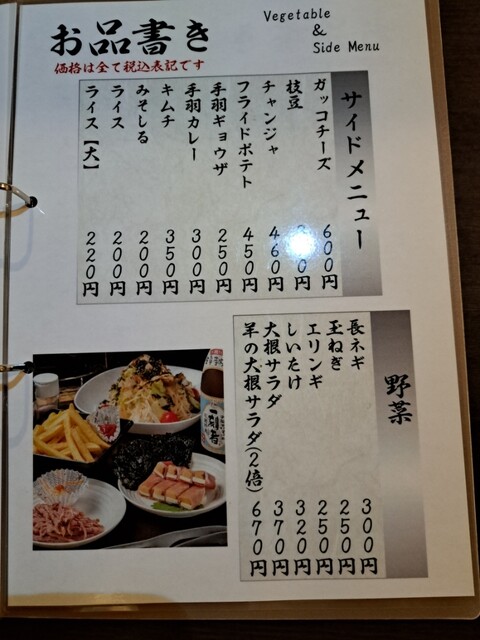 お品書き
価格は全て税込表記です
Vegetable
&
Side Menu
サイドメニュー
ガッコチーズ 600円
枝豆
チャンジャ 460円
フライドポテト 450円
手羽ギョウザ 250円
手羽カレー 300円
キムチ 350円
みそしる 200円
ライス 200円
ライス【大】 220円
野菜
長ネギ 300円
玉ねぎ 250円
エリンギ 250円
しいたけ 320円
大根サラダ 370円
羊の大根サラダ(2倍) 670円